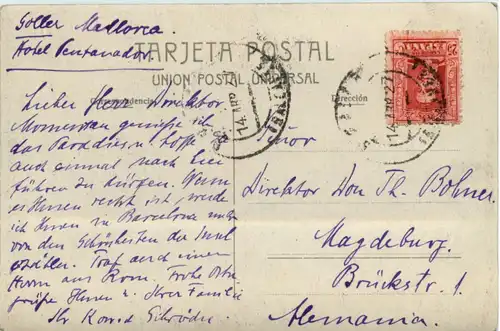 Soller Mallorca
Hotel
TARJETA POSTAL
UNION POSTAL UNIVERSAL
Correspondencia
Dirección
Lieber Herr Direktor
Momentan genieße ich
das Paradies u. hoffe
auch einmal nach
führen zu dürfen. Wenn
es Ihnen recht ist, werde
ich Ihnen in Barcelona mehr
von den Schönheiten der Insel
erzählen. Traf auch einen
Herrn aus Rom. Frohe Oster
grüße Ihnen u. Ihrer Familie
Ihr Konrad Schröder
Direktor Don Th. Bohner
Magdeburg.
Brückstr. 1
Alemania.
25